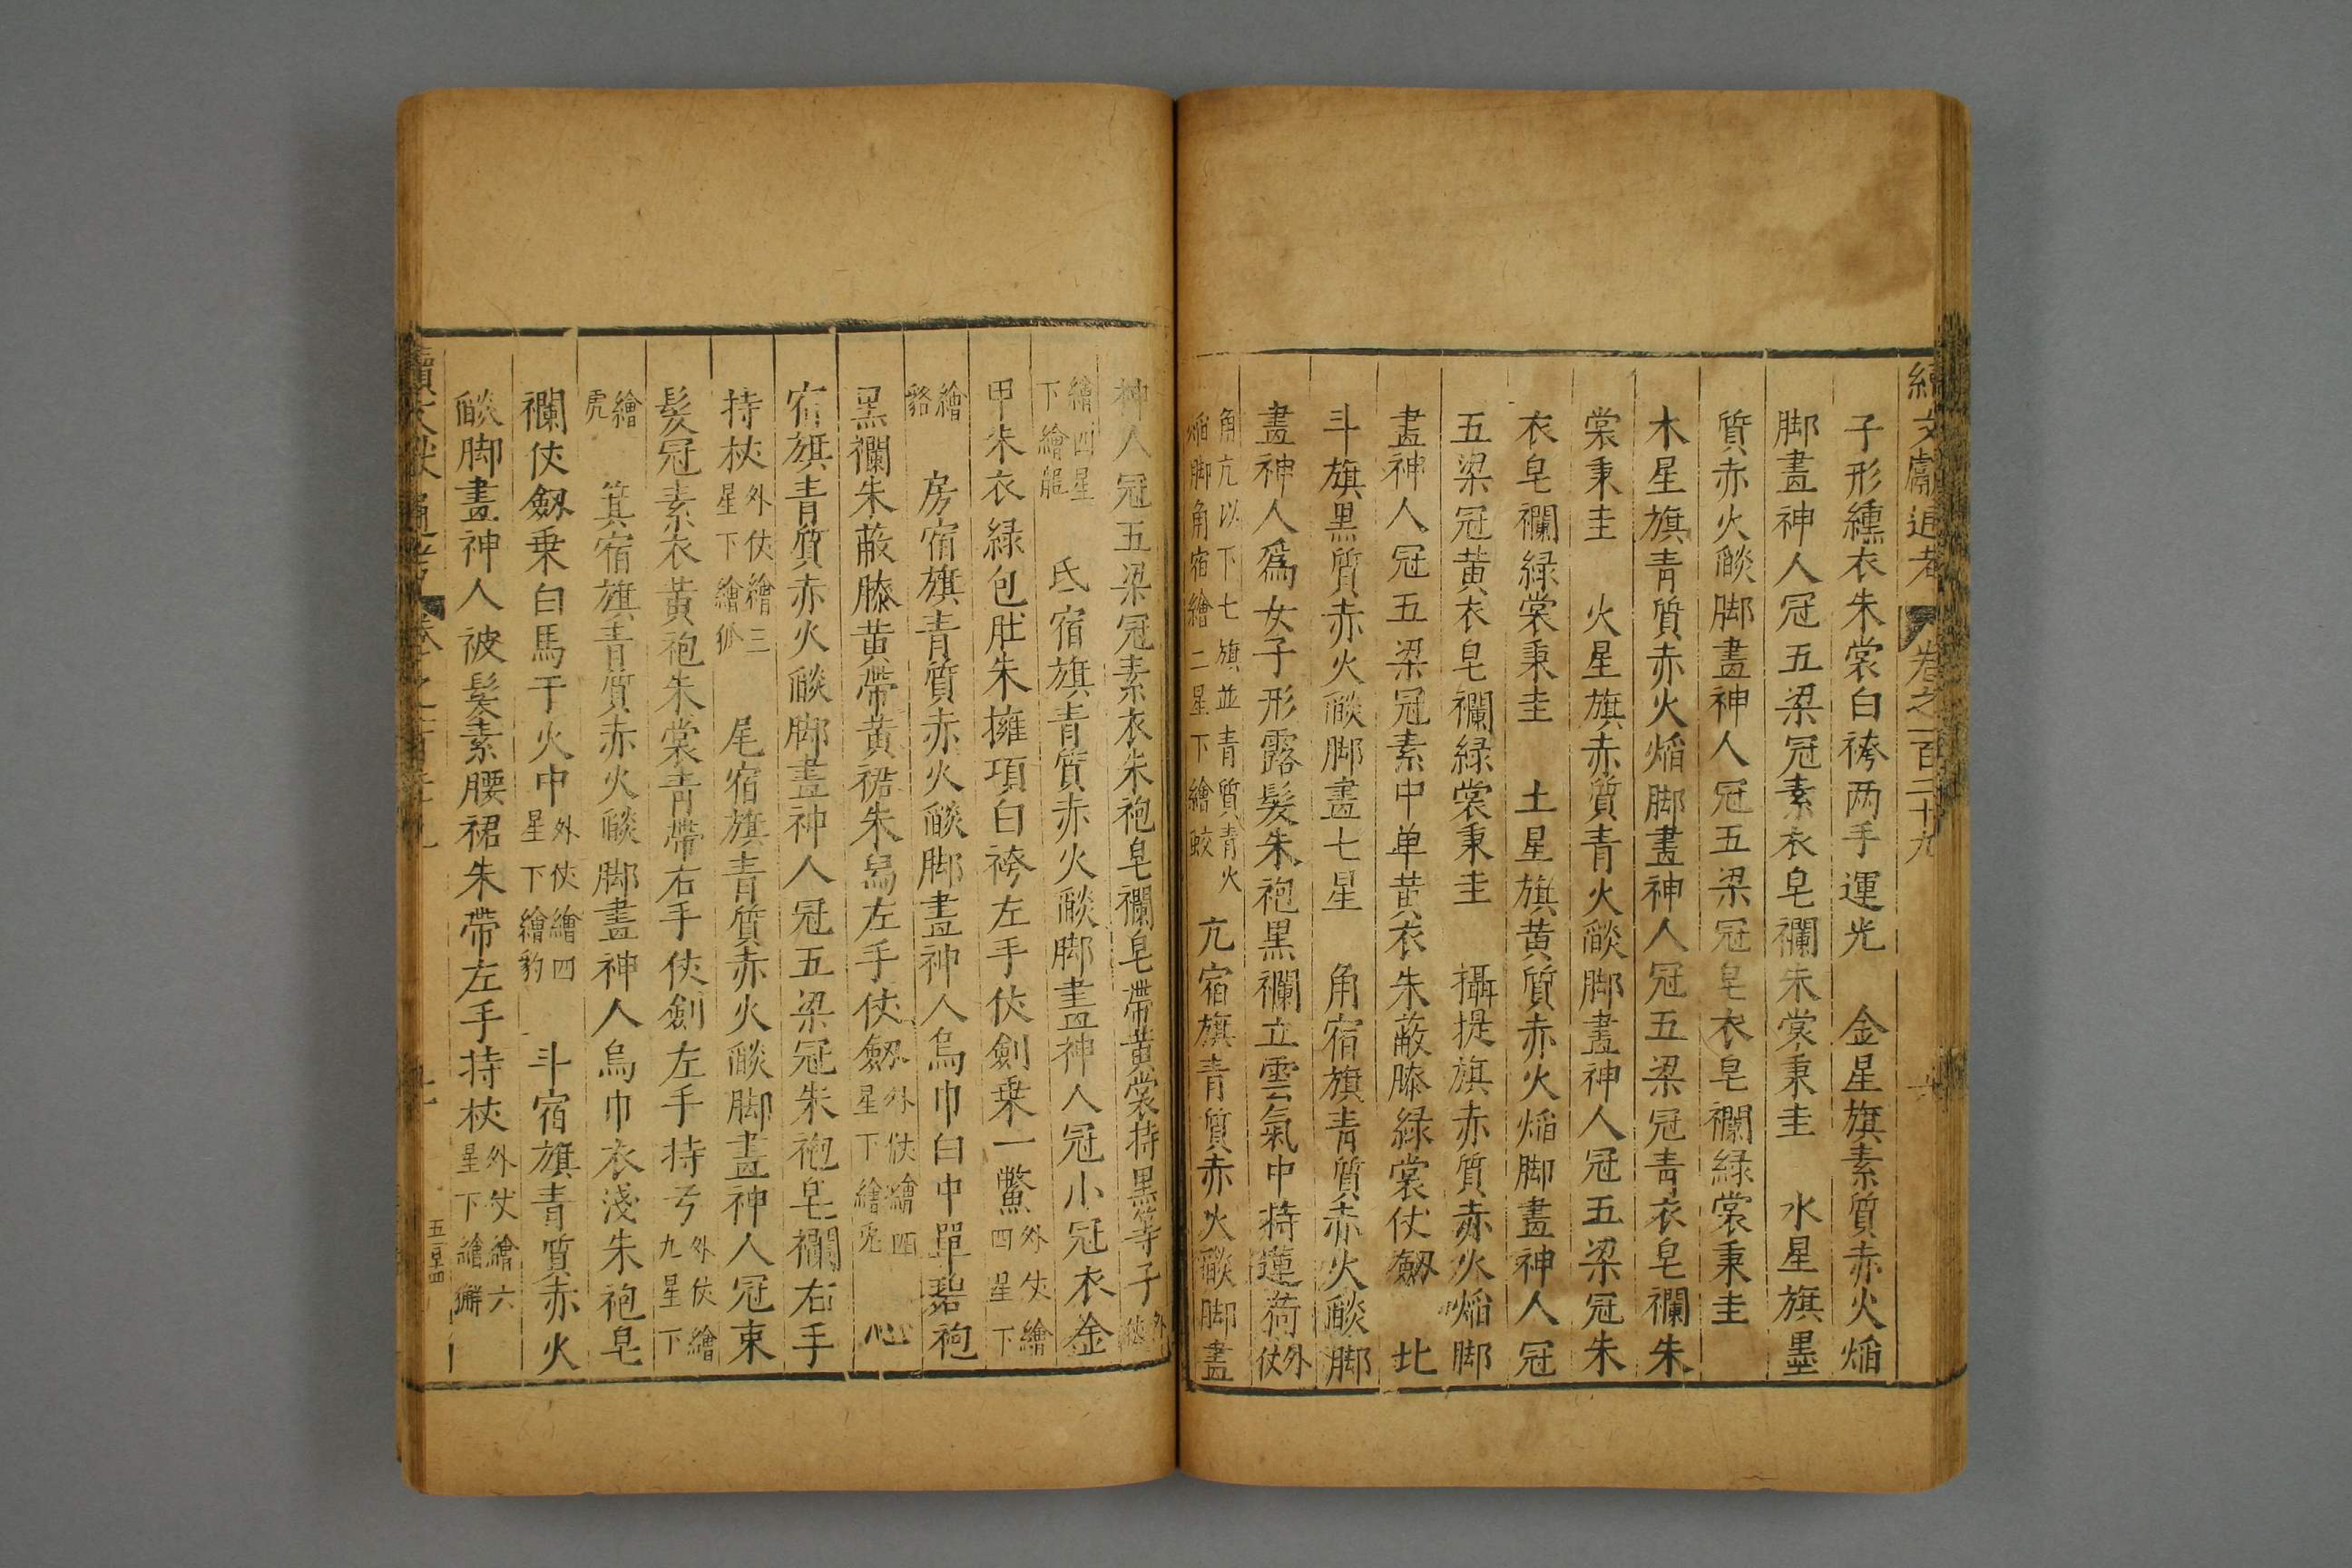 續文獻通考 卷之一百二十九
子形纁衣朱裳白袴两手運光　金星旗素質赤火焰
脚畫神人冠五梁冠素衣皂襴朱裳秉圭　水星旗墨
質赤火燄脚畫神人冠五梁冠皂衣皂襴綠裳秉圭
木星旗青質赤火焰脚畫神人冠五梁冠青衣皂襴朱
裳秉圭　火星旗赤質青火燄脚畫神人冠五梁冠朱
衣皂襴綠裳秉圭　土星旗黄質赤火焰脚畫神人冠
五梁冠黄衣皂襴綠裳秉圭　攝提旗赤質赤火焰脚
畫神人冠五梁冠素中单黄衣朱蔽膝綠裳仗劔　北
斗旗黒質赤火燄脚畫七星　角宿旗青質赤火燄脚
畫神人爲女子形露髮朱袍黒襴立雲氣中持蓮荷外仗
角亢以下七旗並青質青火
焔脚角宿繪二星下繪蛟　亢宿旗青質赤火燄脚畫
神人冠五梁冠素衣朱袍皂襴皂帶黄裳持黒等子外仗
繪四星
下繪龍　氐宿旗青質赤火燄脚畫神人冠小冠衣金
甲朱衣綠包肚朱擁項白袴左手仗劍乗一鱉外仗繪
四星下
繪
貉　房宿旗青質赤火燄脚畫神人烏巾白中單碧袍
黒襴朱蔽膝黄帶黄裙朱舄左手仗劔外仗繪四
星下繪兎　心
宿旗青質赤火燄脚畫神人冠五梁冠朱袍皂襴右手
持杖外仗繪三
星下繪狐　尾宿旗青質赤火燄脚畫神人冠束
髮冠素衣黄袍朱裳青帶右手仗劍左手持弓外仗繪
九星下
繪
虎　箕宿旗青質赤火燄脚畫神人烏巾衣淺朱袍皂
襴仗劔乗白馬于火中外仗繪四
星下繪豹　斗宿旗青質赤火
燄脚畫神人被髮素腰裙朱帶左手持杖外仗繪六
星下繪獬
續文獻通考 卷之一百二十九